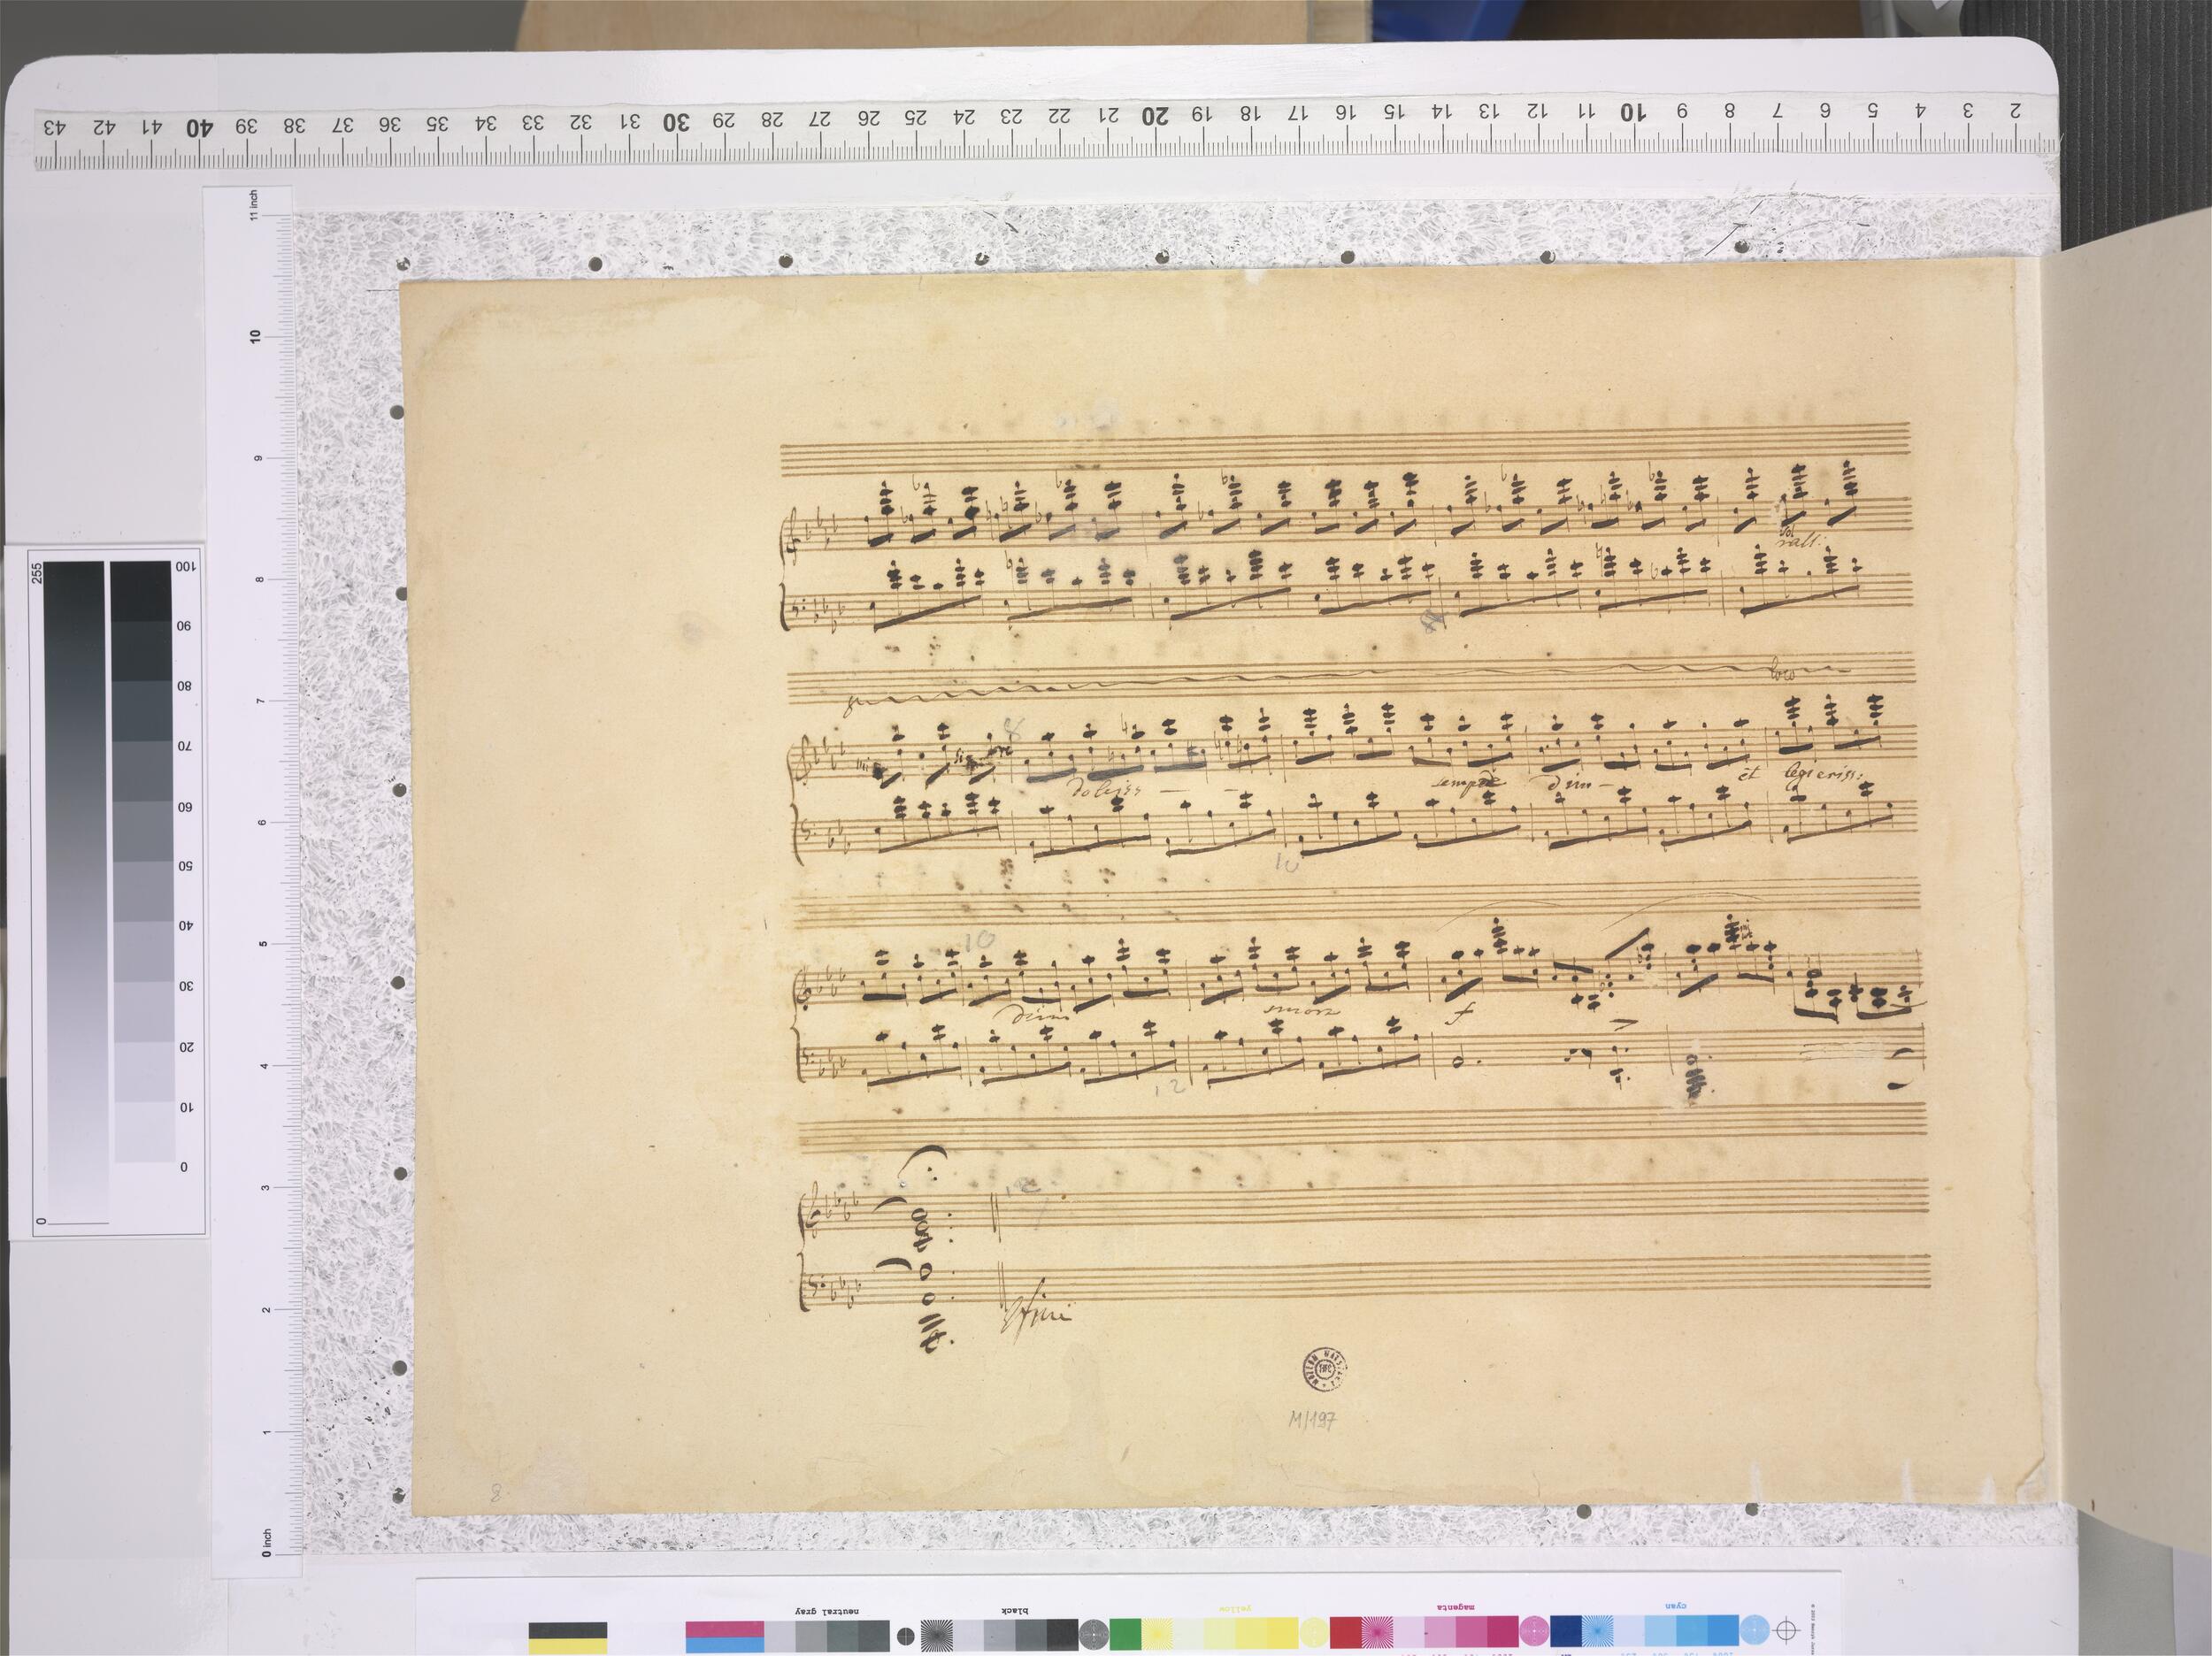 43 42 41 40 39 38 37 36 35 34 33 32 31 30 29 28 27 26 25 24 23 22 21 20 19 18 17 16 15 14 13 12 11 10 9 8 7 6 5 4 3 2
11 inch
10
9
8
7
6
5
4
3
2
1
0 inch
255
0
100
90
80
70
60
50
40
30
20
10
0
rall:
loco
8
dolciss
sempre dim
et legieriss:
10
10
dim
smorz
f
12
12
fine
M/197
8
neutral gray
black
yellow
magenta
cyan